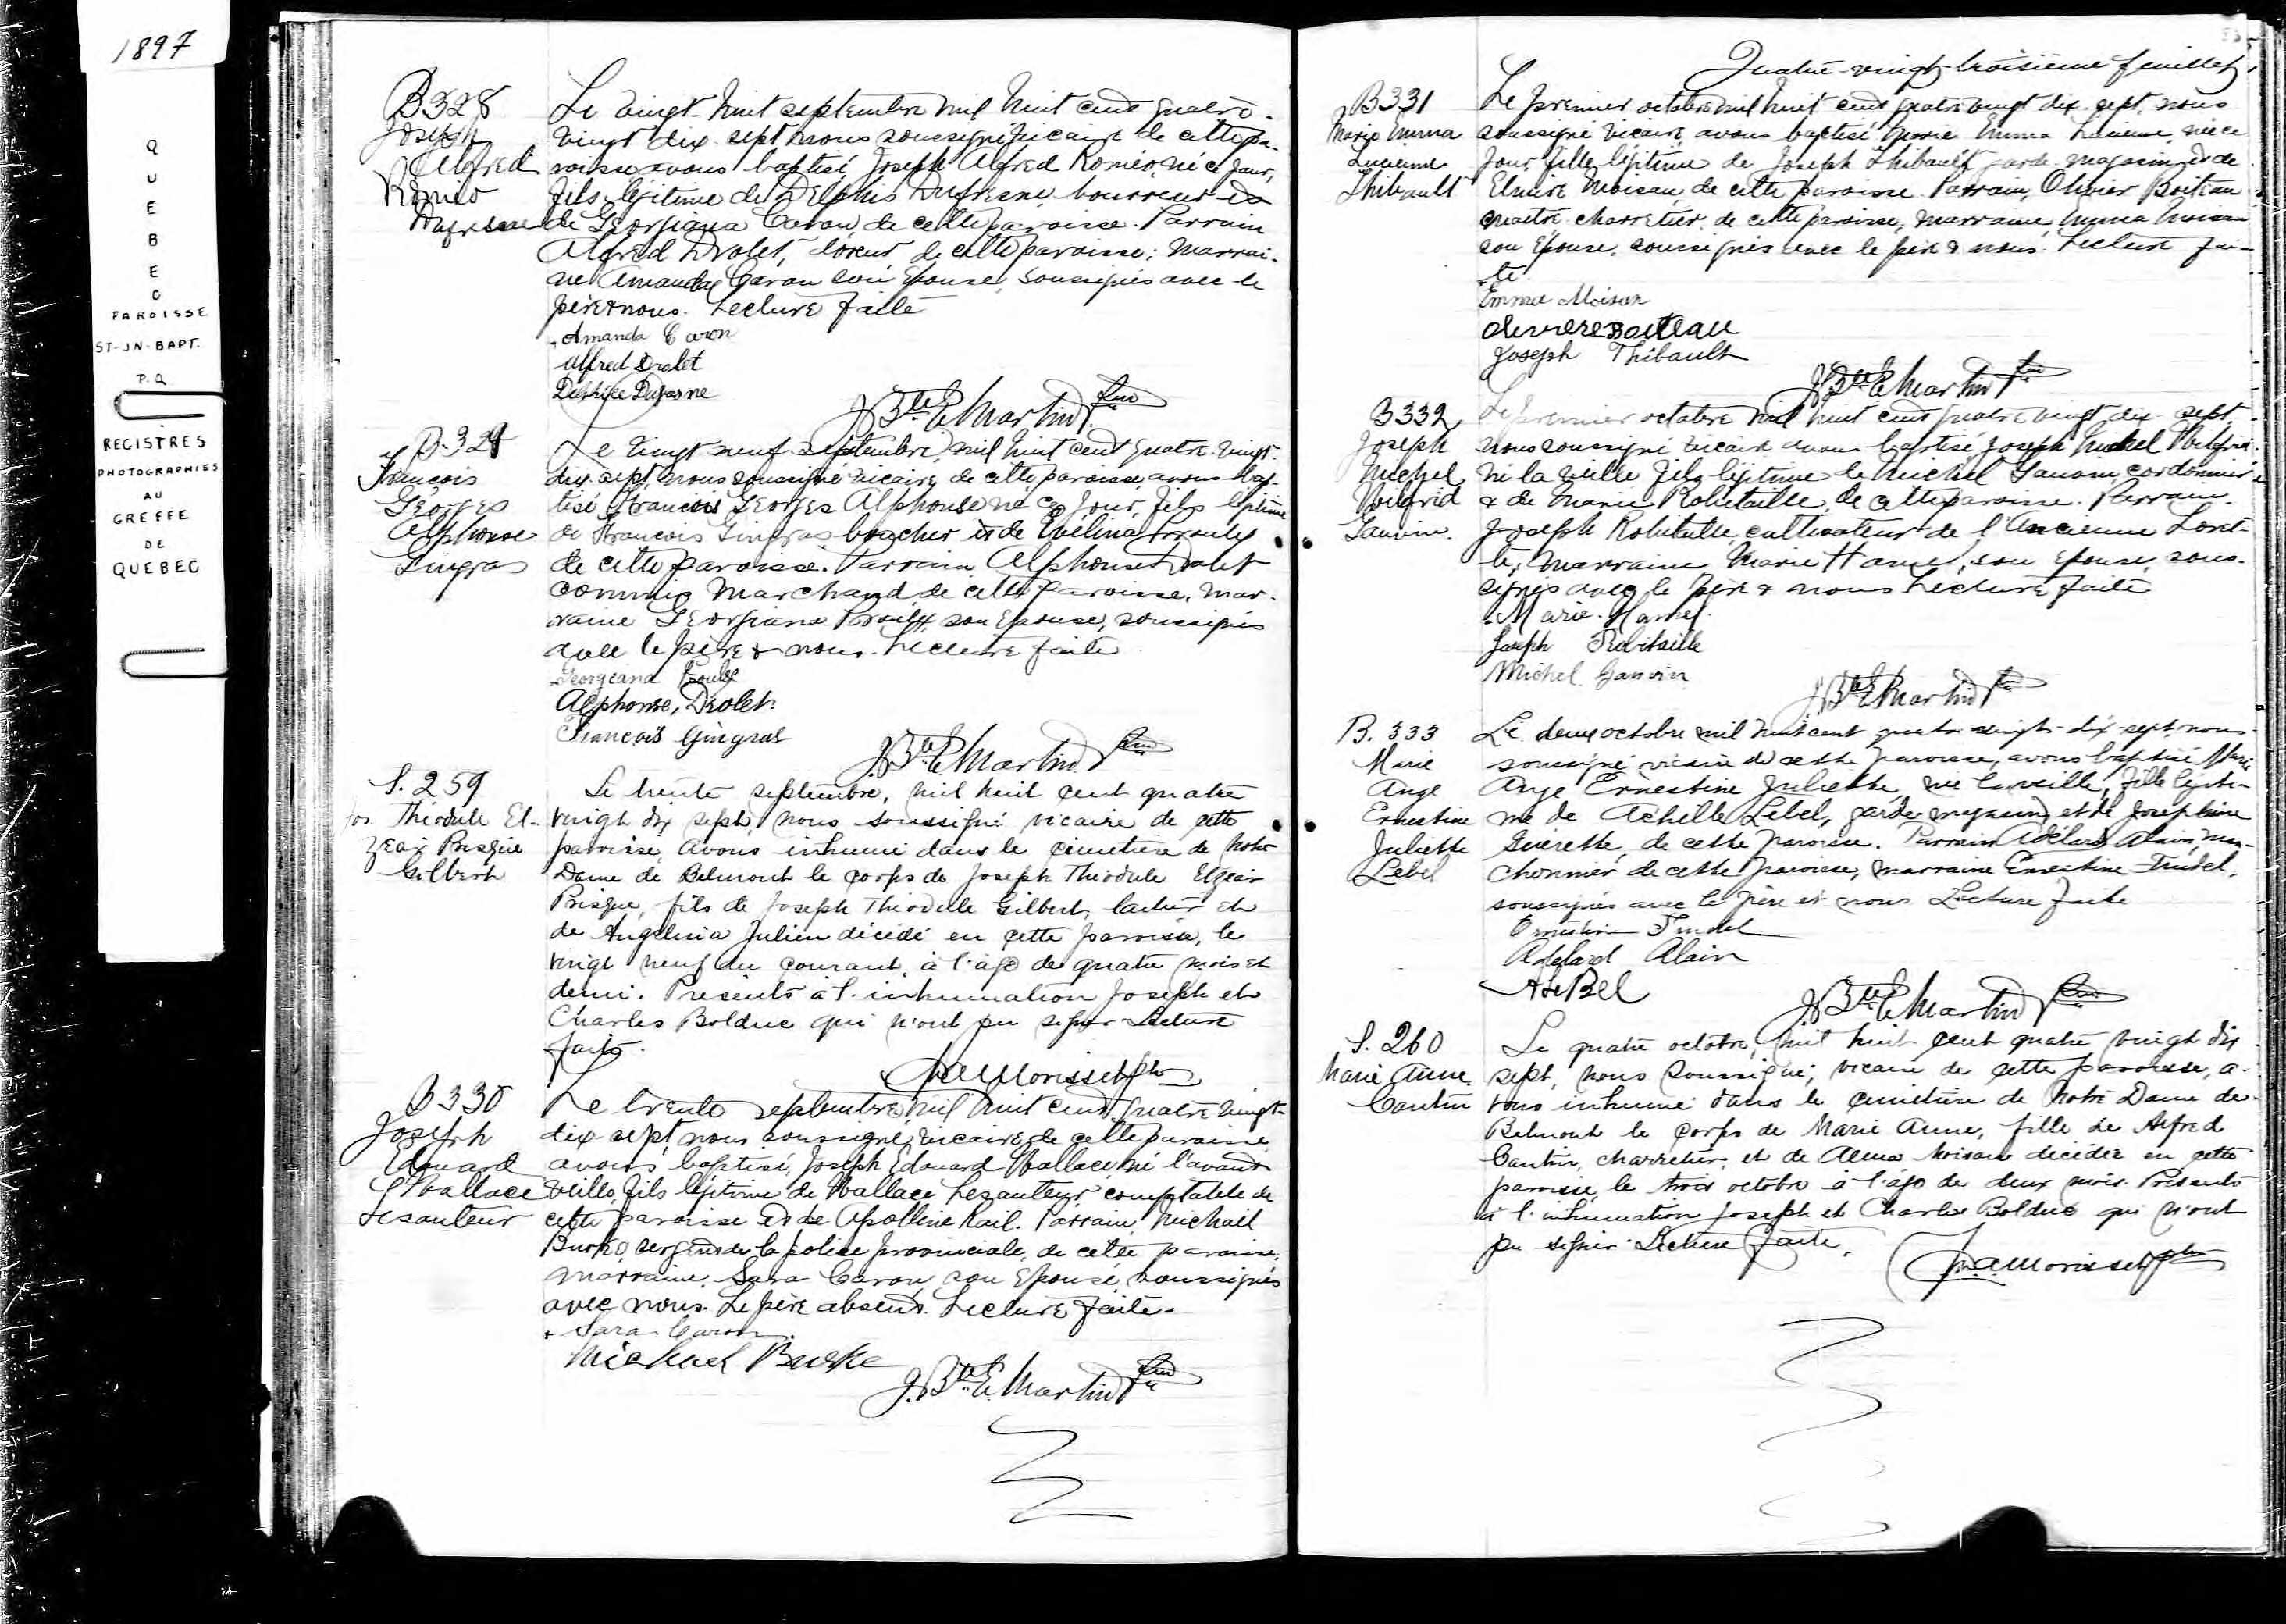 1897
QUEBEC
PAROISSE
ST-JN-BAPT.
P.Q
REGISTRES
PHOTOGRAPHIES
AU
GREFFE
DE
QUEBEC
B328
Joseph
Alfred
Roméo
Dufresne
Le vingt-huit septembre mil huit cent quatre-
vingt dix-sept, nous soussigné vicaire de cette pa-
roisse avons baptisé, Joseph Alfred Roméo, né ce jour,
fils légitime de Delphis Dufresne, bourreur et
de Georgiana Caron, de cette paroisse. Parrain
Alfred Drolet, de cette paroisse; marrai-
ne Amanda Caron son épouse, soussignés avec le
père & nous. Lecture faite
Amanda Caron
Alfred Drolet
Dufresne
J. Bte E. Martin Ptre
B-329
François
Georges
Alphonse
Gingras
Le vingt neuf septembre, mil huit cent quatre-vingt-
dix-sept, nous soussigné vicaire de cette paroisse avons bap-
tisé François Georges Alphonse né ce jour, fils légitime
de François Gingras boucher et de Evelina Proulx
de cette paroisse. Parrain Alphonse Drolet
commis marchand de cette paroisse, mar-
raine Georgiana Proulx, son épouse, soussignés
avec le père & nous. Lecture faite
Georgeana Proulx
Alphonse, Drolet.
François Gingras
J. Bte E. Martin Ptre
S. 259
Jos. Théodule El-
zear Prisque
Gilbert
Le trente septembre, mil huit cent quatre
vingt dix sept, nous soussigné vicaire de cette
paroisse, avons inhumé dans le cimetière de Notre
Dame de Belmont le corps de Joseph Théodule Elzear
Prisque, fils de Joseph Théodule Gilbert, laitier et
de Angelina Julien décédé en cette paroisse, le
vingt neuf du courant, à l'âge de quatre mois et
demi. Présents à l'inhumation Joseph et
Charles Bolduc qui n'ont pu signer. Lecture
faite.
Morisset ptre
B330
Joseph
Edouard
Wallace
Lesauteur
Le trente septembre, mil huit cent quatre vingt-
dix-sept, nous soussigné, vicaire de cette paroisse,
avons baptisé, Joseph Edouard Wallace né l'avant
veille, fils légitime de Wallace Lesauteur, comptable de
cette paroisse et de Apolline Rail. Parrain, Michael
Burke, sergent de la police provinciale, de cette paroisse,
marraine, Sara Caron, son épouse, soussignés
avec nous. Le père absent. Lecture faite.
Sara Caron
Michael Burke
J. Bte E. Martin Ptre
Quatre-vingt-troisième feuillet,
B331
Marie Emma
Lucienne
Thibault
Le premier octobre mil huit cent quatre vingt dix-sept, nous
soussigné vicaire, avons baptisé Marie Emma Lucienne, née ce
jour, fille légitime de Joseph Thibault garde-magasin, et de
Elmire Moisan, de cette paroisse. Parrain, Olivier Boiteau
maître charretier, de cette paroisse, marraine, Emma Moisan
son épouse, soussignés avec le père & nous. Lecture fai-
te.
Emma Moisan
Boiteau
Joseph Thibault
J. Bte E. Martin Ptre
B332
Joseph
Michel
Wilfrid
Gauvin.
Le premier octobre mil huit cent quatre vingt dix-sept,
nous soussigné vicaire avons baptisé Joseph Michel Wilfrid
né la veille fils légitime de Michel Gauvin, cordonnier
& de Marie Robitaille, de cette paroisse. Parrain.
Joseph Robitaille, cultivateur de l'Ancienne Loret-
te, marraine, Marie Hamel, son épouse, sous-
signés avec le père & nous. Lecture faite
Marie Hamel.
Joseph Robitaille
Michel Gauvin
J. Bte E. Martin Ptre
B. 333
Marie
Ange
Ernestine
Juliette
Lebel
Le deux octobre mil huit cent quatre vingt-dix-sept, nous
soussigné vicaire de cette paroisse, avons baptisé Marie
Ange Ernestine Juliette, née la veille, fille légiti-
me de Achille Lebel, garde magasin, et de Josephine
Guerette, de cette paroisse. Parrain Adélard Alain, man-
chonnier de cette paroisse, marraine Ernestine Trudel,
soussignés avec le père et nous Lecture faite
Ernestine Trudel
Adelard Alain
A LeBel
J. Bte E. Martin Ptre
S. 260
Marie Anne
Cantin
Le quatre octobre, mil huit cent quatre vingt dix
sept, nous soussigné, vicaire de cette paroisse, a-
vons inhumé dans le cimetière de Notre Dame de
Belmont le corps de Marie Anne, fille de Alfred
Cantin, charretier, et de Alma Moisan décédée en cette
paroisse, le trois octobre à l'âge de deux mois. Présents
à l'inhumation Joseph et Charles Bolduc qui n'ont
pu signer. Lecture faite.
Morisset ptre